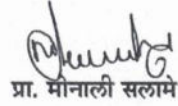 प्रा. मोनाली सलामे